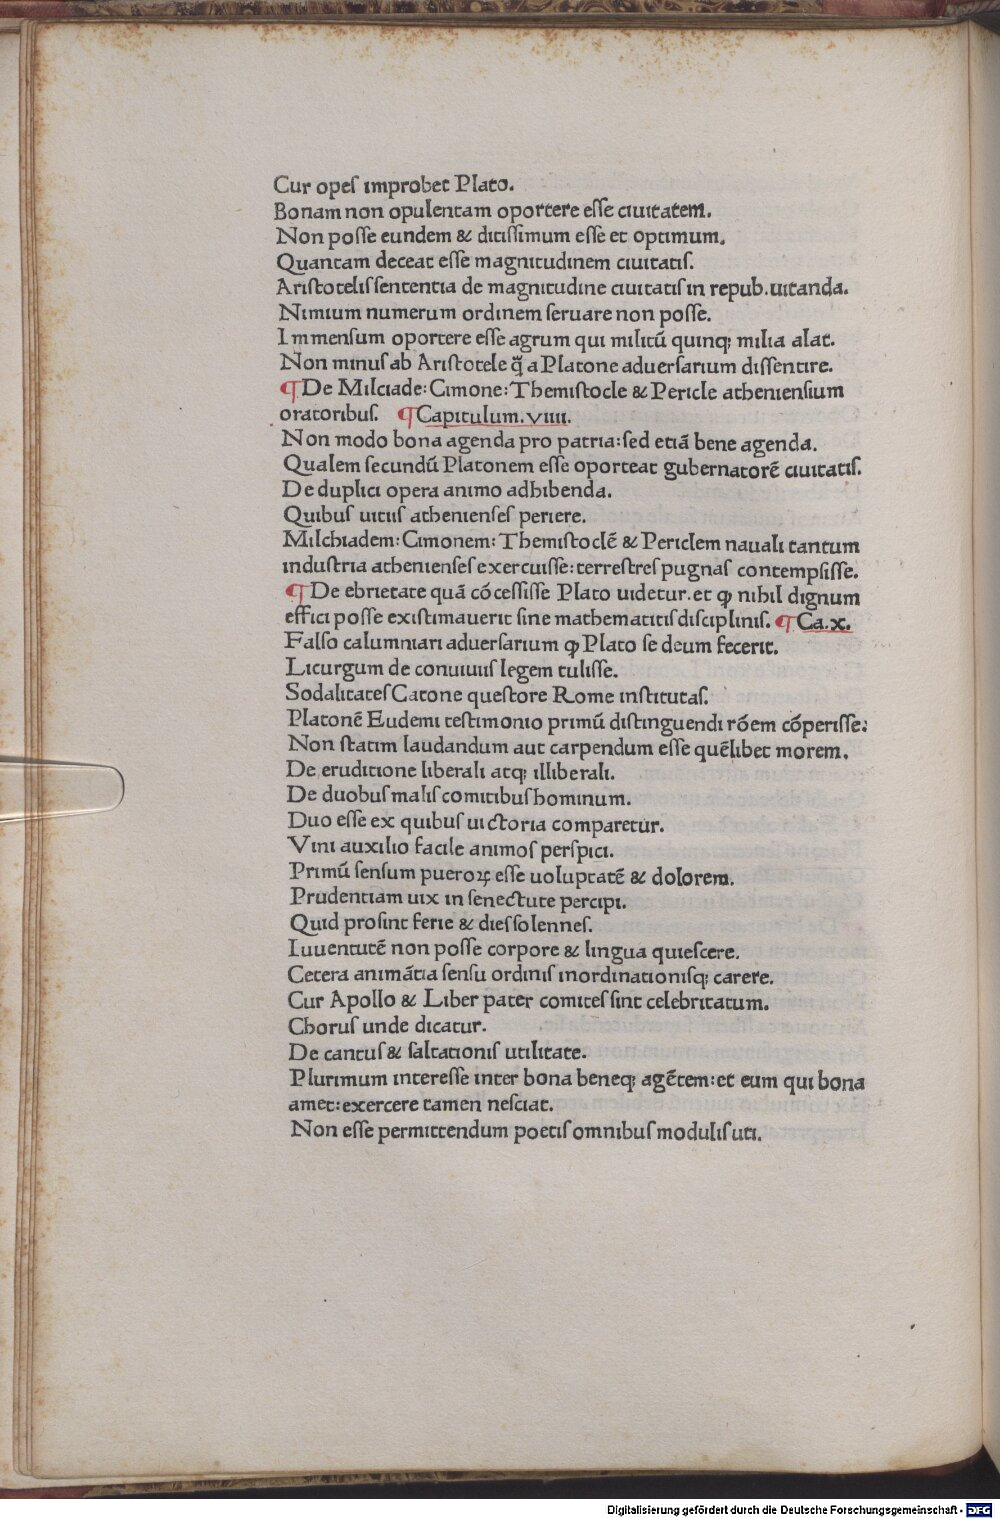 Cur opeſ improbet Plato.
Bonam non opulentam oportere eſſe ciuitatem.
Non poſſe eundem & ditiſſimum eſſe et optimum.
Quantam deceat eſſe magnitudinem ciuitatiſ.
Ariſtoteliſ ſententia de magnitudine ciuitatiſ in repub. uitanda.
Nimium numerum ordinem ſeruare non poſſe.
Immenſum oportere eſſe agrum qui militū quinq; milia alat.
Non minuſ ab Ariſtotele q̄ a Platone aduerſarium diſſentire.
¶ De Milciade: Cimone: Themiſtocle & Pericle athenienſium
oratoribuſ. ¶ Capitulum. VIIII.
Non modo bona agenda pro patria: ſed etiā bene agenda.
Qualem ſecundū Platonem eſſe oporteat gubernatorē ciuitatiſ.
De duplici opera animo adhibenda.
Quibuſ uitiiſ athenienſeſ periere.
Milchiadem: Cimonem: Themiſtoclē & Periclem nauali tantum
induſtria athenienſeſ exercuiſſe: terreſtreſ pugnaſ contempſiſſe.
¶ De ebrietate quā cōceſſiſſe Plato uidetur. et ꝙ nihil dignum
effici poſſe exiſtimauerit ſine mathematitiſ diſcipliniſ. ¶ Ca. x.
Falſo calumniari aduerſarium ꝙ Plato ſe deum fecerit.
Licurgum de conuiuiiſ legem tuliſſe.
Sodalitateſ Catone queſtore Rome inſtitutaſ.
Platonē Eudemi teſtimonio primū diſtinguendi rōem cōperiſſe:
Non ſtatim laudandum aut carpendum eſſe quēlibet morem.
De eruditione liberali atq; illiberali.
De duobuſ maliſ comitibuſ hominum.
Duo eſſe ex quibuſ uictoria comparetur.
Vini auxilio facile animoſ perſpici.
Primū ſenſum pueroꝝ eſſe uoluptatē & dolorem.
Prudentiam uix in ſenectute percipi.
Quid proſint ferie & dieſ ſolenneſ.
Iuuentutē non poſſe corpore & lingua quieſcere.
Cetera animātia ſenſu ordiniſ inordinationiſq; carere.
Cur Apollo & Liber pater comiteſ ſint celebritatum.
Choruſ unde dicatur.
De cantuſ & ſaltationiſ utilitate.
Plurimum intereſſe inter bona beneq; agētem: et eum qui bona
amet: exercere tamen neſciat.
Non eſſe permittendum poetiſ omnibuſ moduliſ uti.
Digitalisierung gefördert durch die Deutsche Forschungsgemeinschaft - DFG